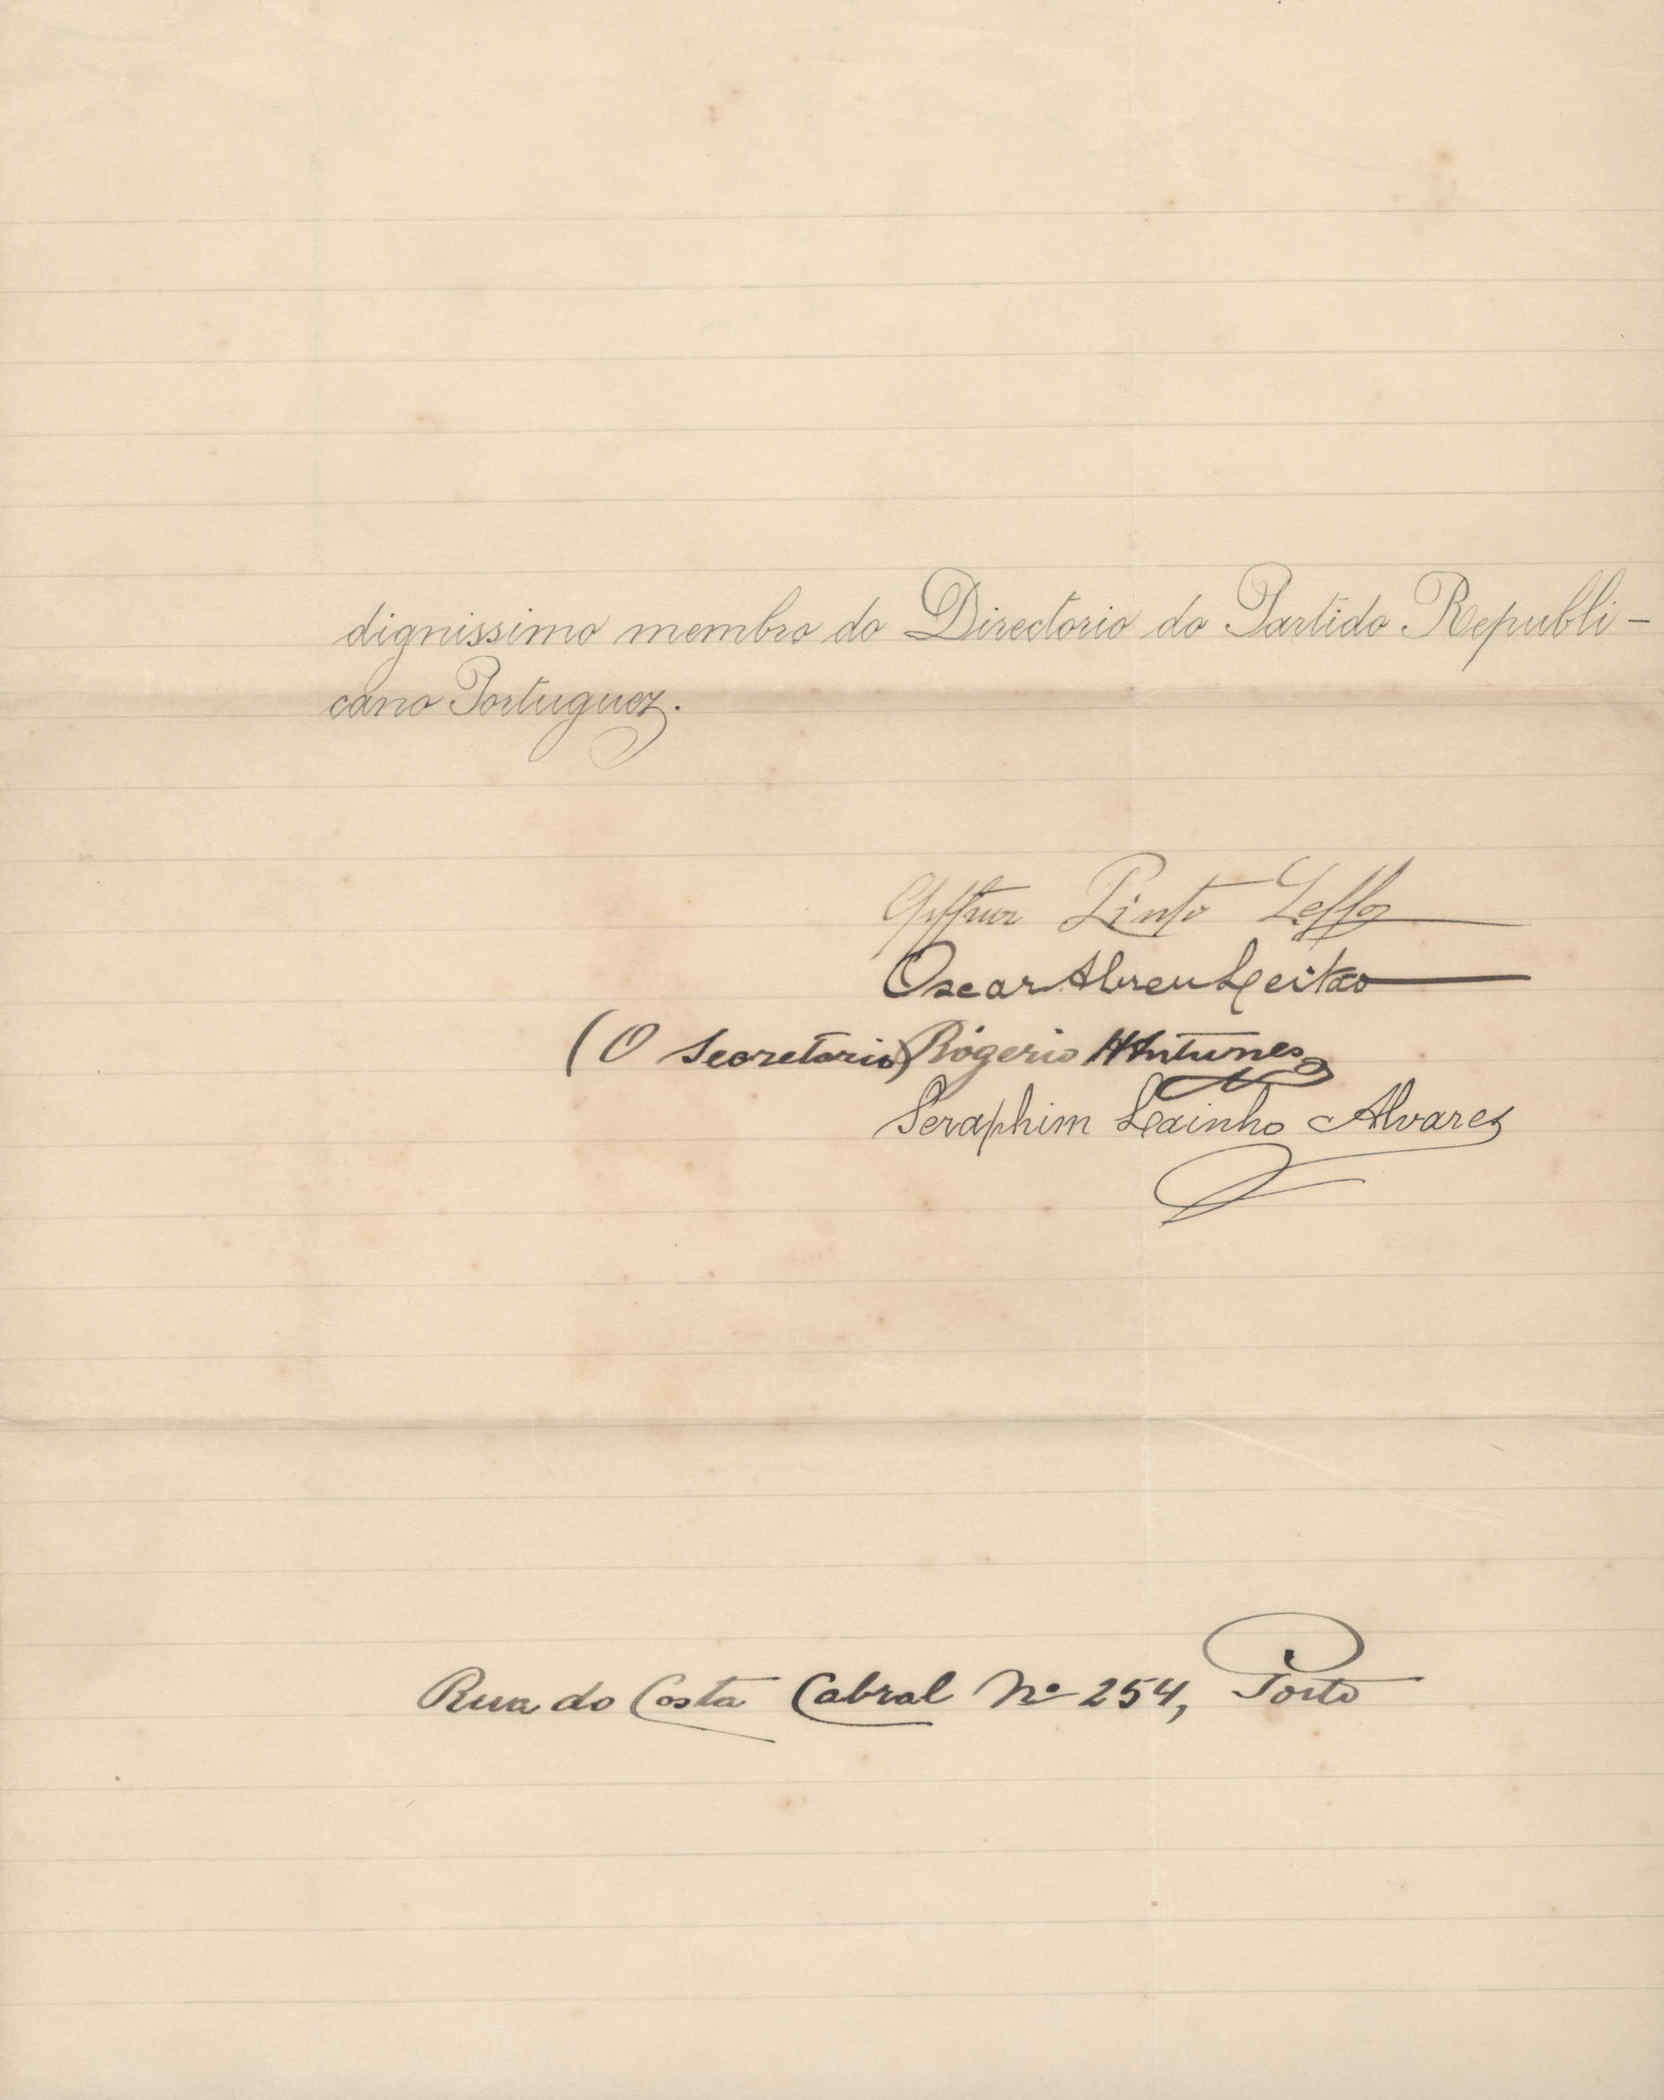 dignissimo membro do Directorio do Partido Republi-
cano Portuguez.
Pinto
Oscar Abreu Leitão
(O Secretario) Rogerio Antunes
Seraphim Lainho Alvares
Rua do Costa Cabral Nº 254, Porto